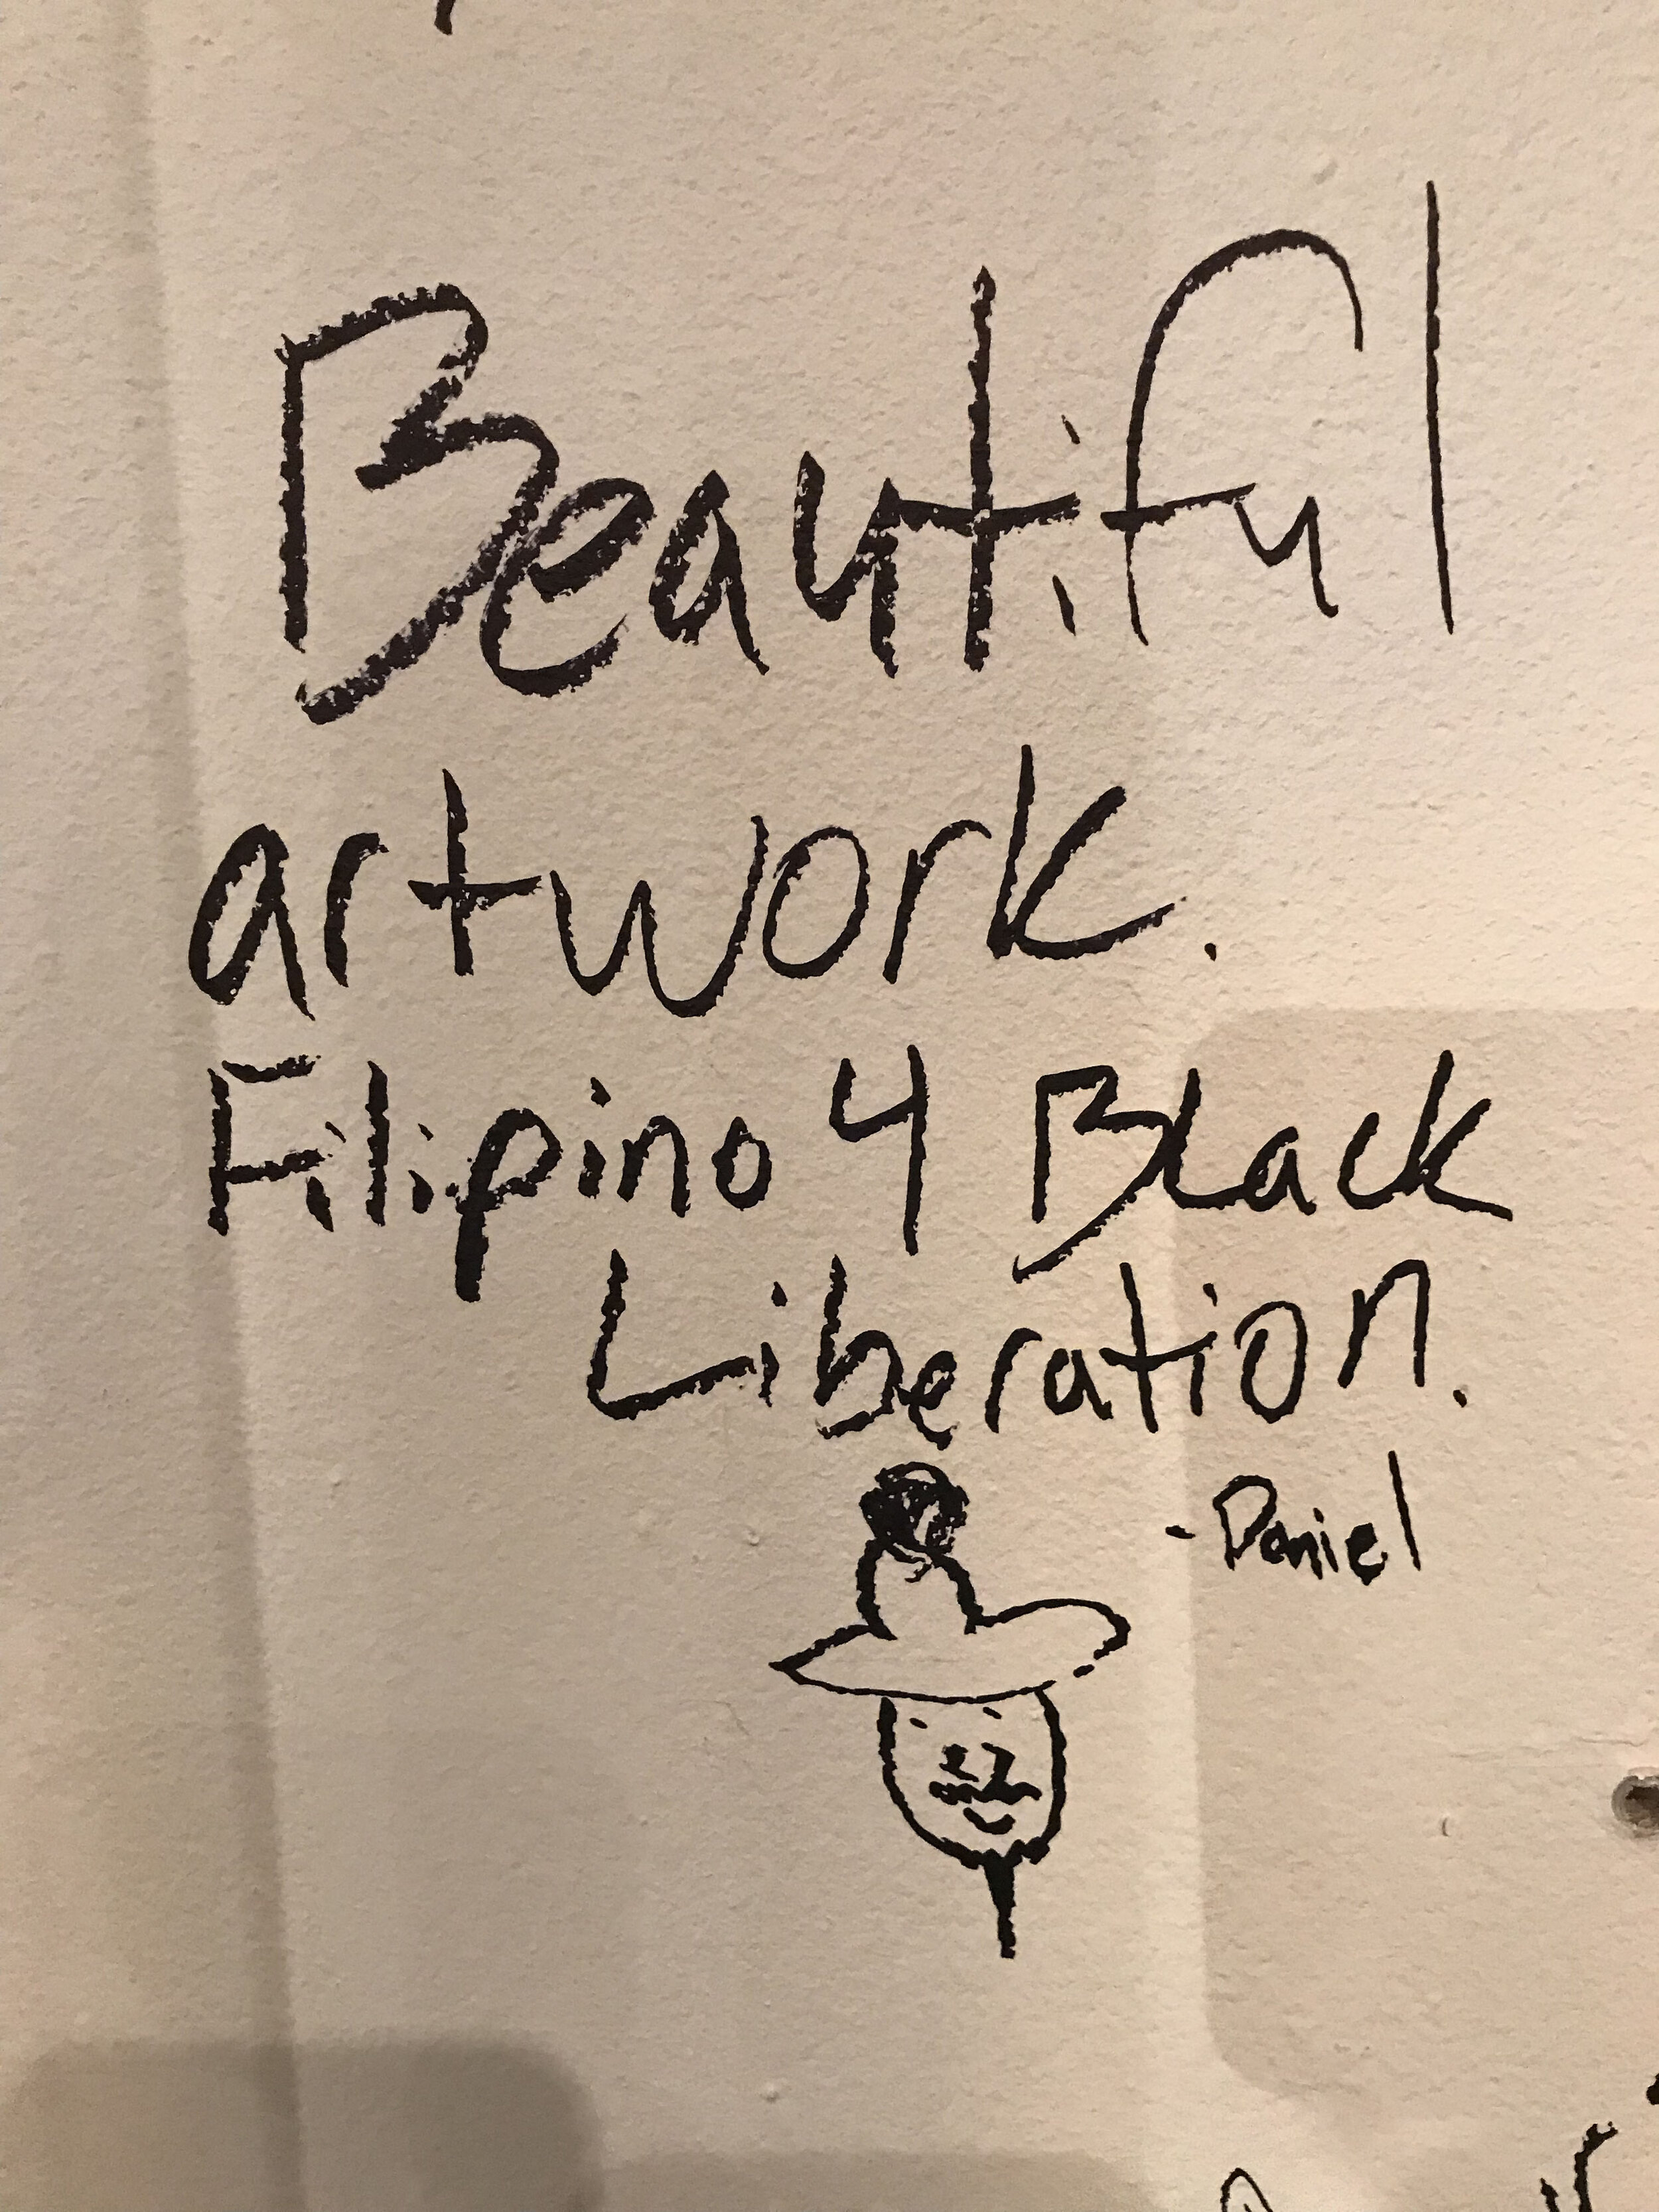 Beautiful
artwork.
Filipino 4 Black
Liberation.
-Daniel